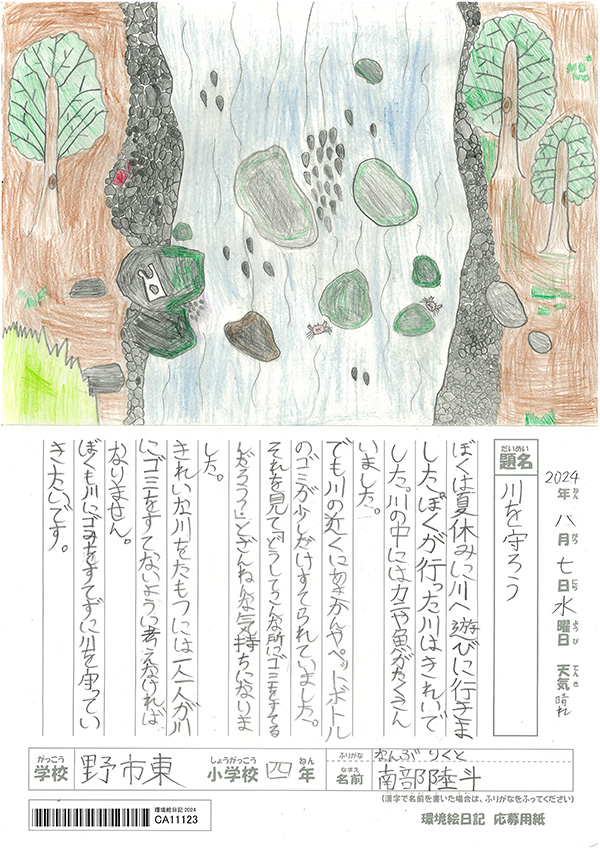 2024年ねん 八月がつ 七日にち 水曜日ようび 天気てんき 晴れ
だいめい
題名
川を守ろう
ぼくは夏休みに川へ遊びに行きま
した。ぼくが行った川はきれいで
した。川の中にはカニや魚がたくさん
いました。
でも川の近くにあきかんやペットボトル
のゴミが少しだけすてられていました。
それを見て「どうしてこんな所にゴミをすてる
んだろう?」とざんねんな気持ちになりま
した。
きれいな川をたもつには一人一人が川
にゴミをすてないように考えなければ
なりません。
ぼくも川にゴミをすてずに川を守ってい
きたいです。
がっこう
学校
野市東
しょうがっこう
小学校
四
ねん
年
ふりがな
なんぶ りくと
なまえ
名前
南部陸斗
(漢字で名前を書いた場合は、ふりがなをふってください)
環境絵日記2024
CA11123
環境絵日記 応募用紙